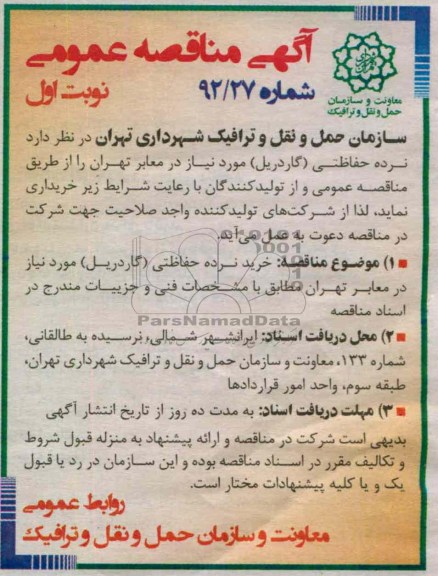 آگهی مناقصه عمومی
شماره ۹۲/۲۷ نوبت اول
معاونت و سازمان
حمل و نقل و ترافیک
سازمان حمل و نقل و ترافیک شهرداری تهران در نظر دارد
نرده حفاظتی (گاردریل) مورد نیاز در معابر تهران را از طریق
مناقصه عمومی و از تولیدکنندگان با رعایت شرایط زیر خریداری
نماید، لذا از شرکت‌های تولیدکننده واجد صلاحیت جهت شرکت
در مناقصه دعوت به عمل می‌آید.
۱) موضوع مناقصه: خرید نرده حفاظتی (گاردریل) مورد نیاز
در معابر تهران مطابق با مشخصات فنی و جزییات مندرج در
اسناد مناقصه
ParsNamadData
۲) محل دریافت اسناد: ایرانشهر شمالی، نرسیده به طالقانی،
شماره ۱۳۳، معاونت و سازمان حمل و نقل و ترافیک شهرداری تهران،
طبقه سوم، واحد امور قراردادها
۳) مهلت دریافت اسناد: به مدت ده روز از تاریخ انتشار آگهی
بدیهی است شرکت در مناقصه و ارائه پیشنهاد به منزله قبول شروط
و تکالیف مقرر در اسناد مناقصه بوده و این سازمان در رد یا قبول
یک و یا کلیه پیشنهادات مختار است.
روابط عمومی
معاونت و سازمان حمل و نقل و ترافیک